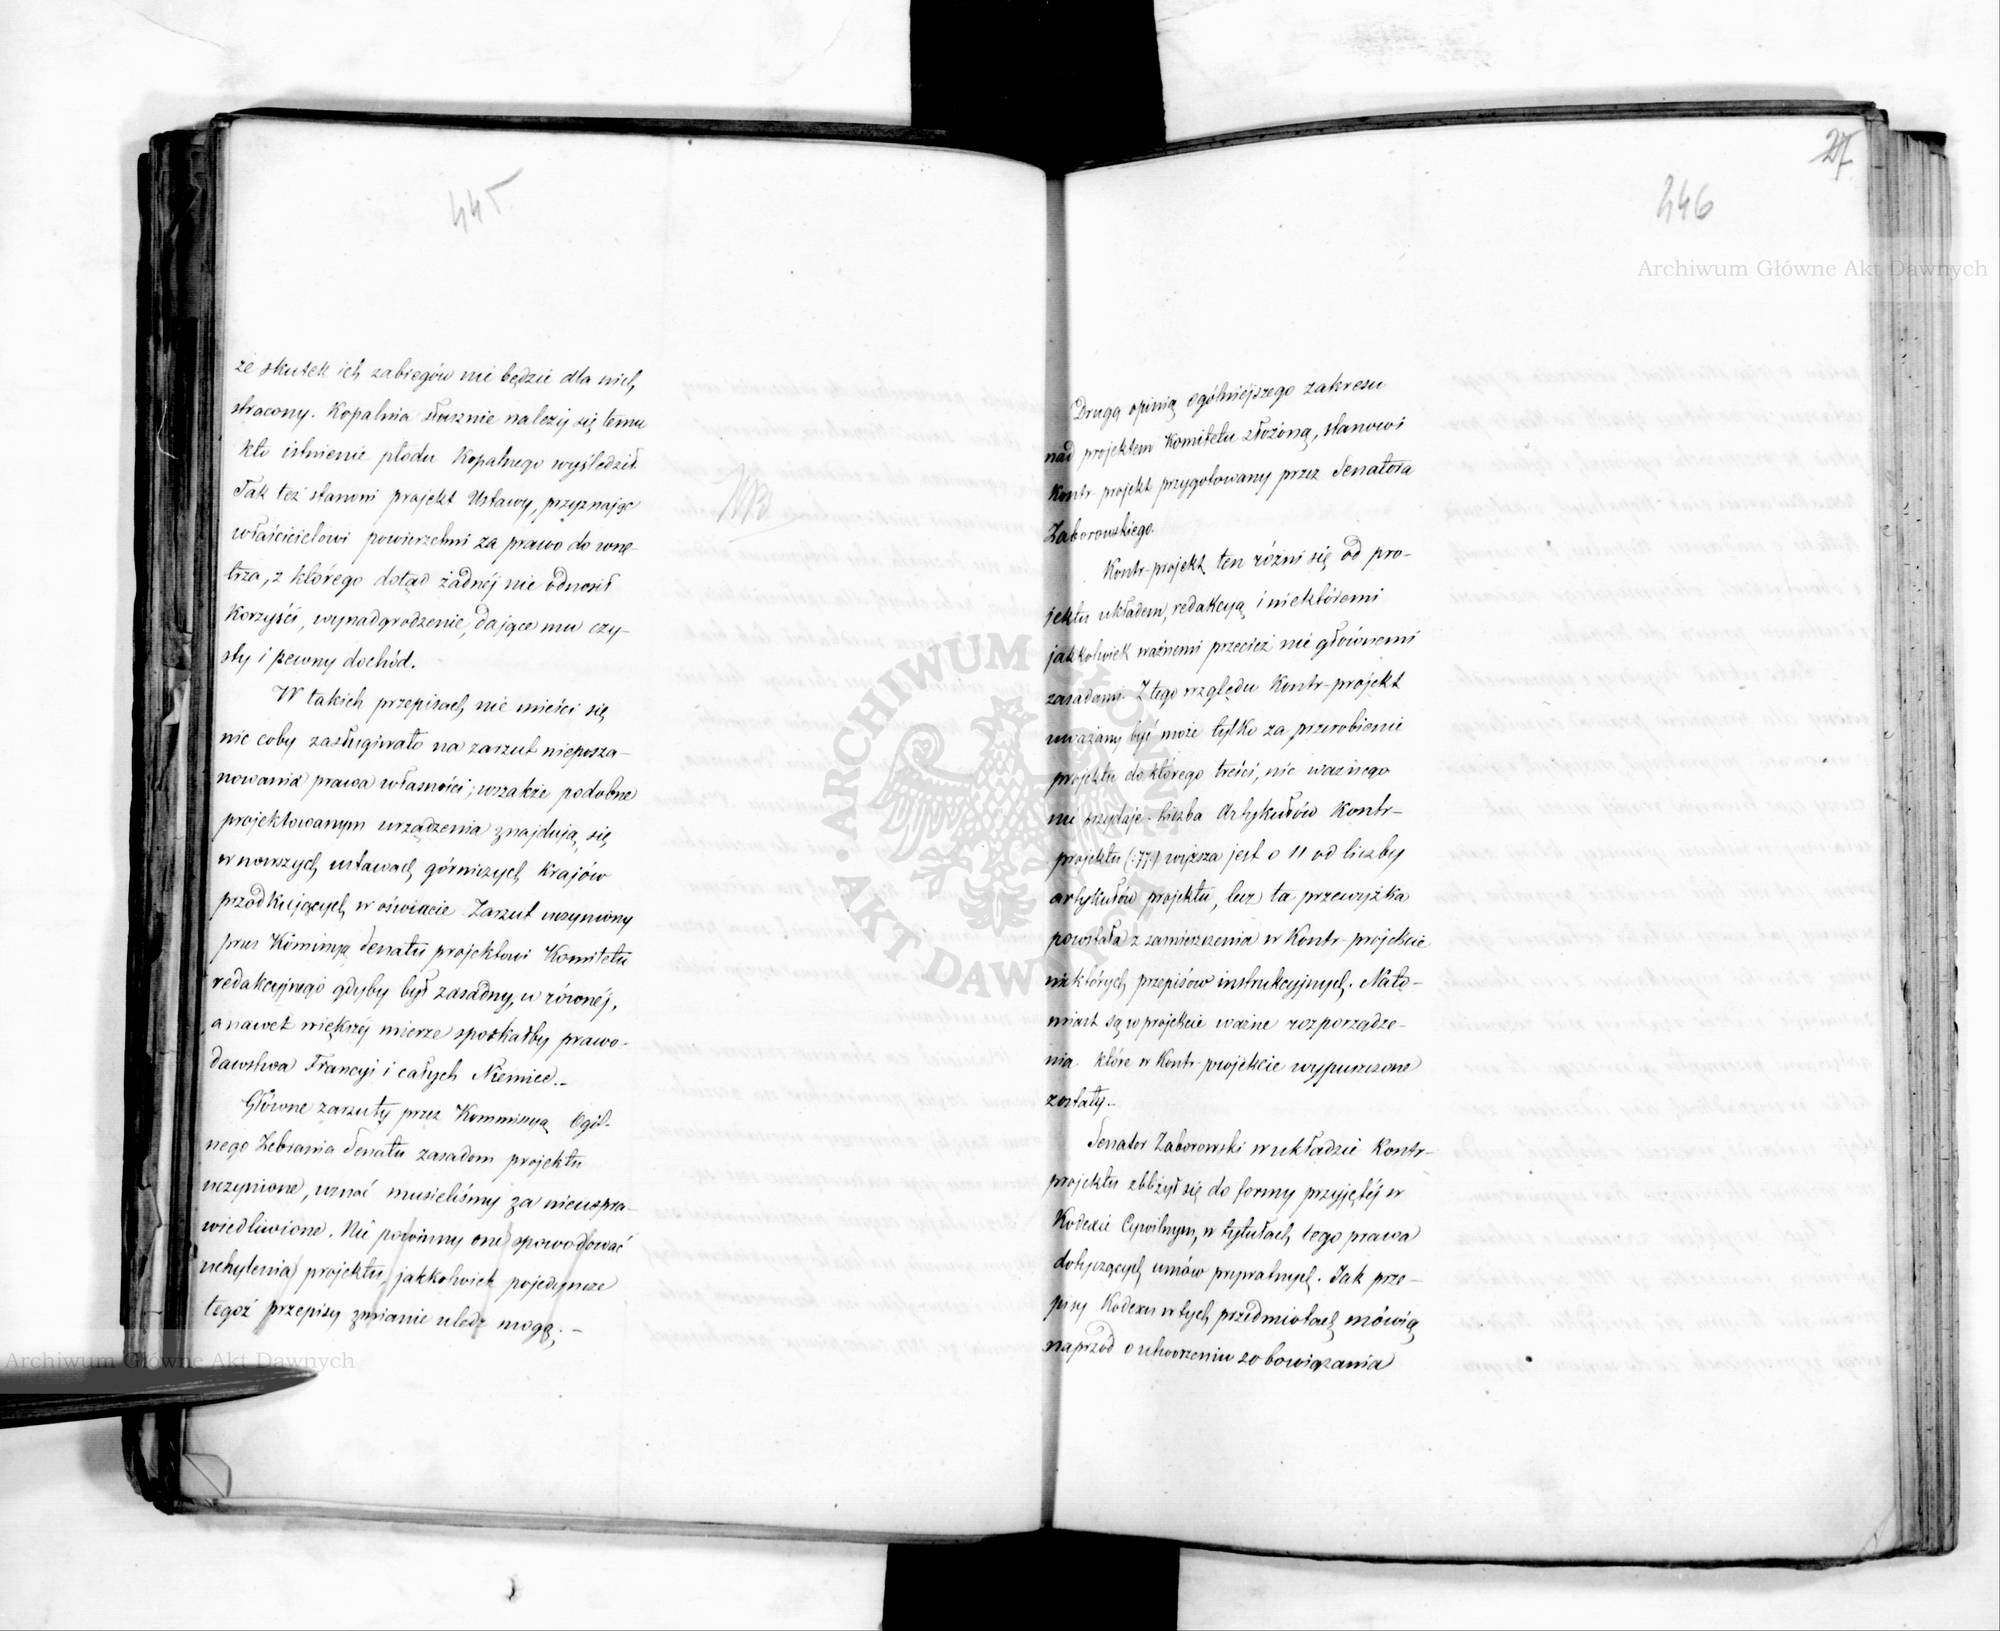 445
że skutek ich zabiegów nie będzie dla nich
stracony. Kopalnia słusznie należy się temu
kto istnienie płodu Kopalnego wyśledził
Tak też stanowi projekt Ustawy, przyznając
właścicielowi powierzchni za prawo do wnę-
trza, z którego dotąd żadnéj nie odnosił
Korzyści, wynadgrodzenie, dające mu czy-
sty i pewny dochód.
W takich przepisach nie mieści się
nic coby zasługiwało na zarzut nieposza-
nowania prawa własności; wszakże podobne
projektowanym urządzenia znajdują się
w nowszych ustawach górniczych krajów
przodkujących w oświacie. Zarzut uczyniony
przez Kommissyą Senatu projektowi Komitetu
redakcyjnego gdyby był zasadny, w równéj,
a nawet większéj mierze spotkałby prawo-
dawstwa Francyi i całych Niemiec.-
Główne zarzuty przez Kommissyą Ogól-
nego Zebrania Senatu zasadom projektu
uczynione, uznać musieliśmy za nieuspra-
wiedliwione. Nie powinny one spowodować
uchylenia projektu, jakkolwiek pojedyncze
tegoż przepisy zmianie uledz mogą.-
27
446
Drugą opinią ogólniejszego zakresu
nad projektem Komitetu złożoną, stanowi
Kontr-projekt przygotowany przez Senatora
Zaborowskiego.
Kontr-projekt ten różni się od pro-
jektu układem, redakcyą i niektóremi
jakkolwiek ważnemi przecież nie głównemi
zasadami. Z tego względu Kontr-projekt
uważany być może tylko za przerobienie
projektu do którego treści, nic ważnego
nie przydaje. Liczba Artykułów Kontr-
projektu (:77:) większa jest o 11 od liczby
artykułów projektu, lecz ta przewyżka
powstała z zamieszczenia w Kontr-projekcie
niektórych przepisów instrukcyjnych. Nato-
miast są w projekcie ważne rozporządze-
nia które w Kontr-projekcie wypuszczone
zostały.-
Senator Zaborowski w układzie Kontr-
projektu zbliżył się do formy przyjętéj w
Kodexie Cywilnym, w tytułach tego prawa
dotyczących umów prywatnych. Jak prze-
pisy Kodexu w tych przedmiotach mówią
naprzód o utworzeniu zobowiązania
Archiwum Główne Akt Dawnych
Archiwum Główne Akt Dawnych